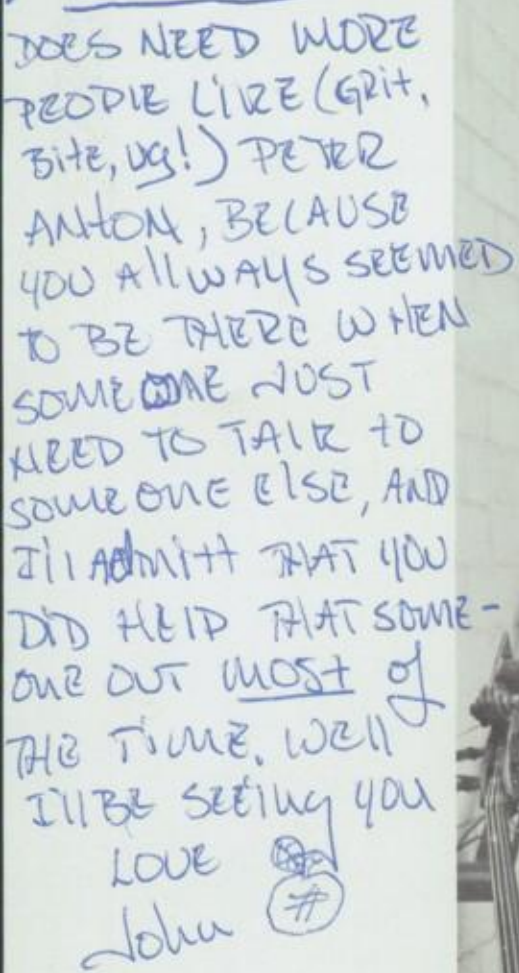 DOES NEED MORE
PEOPLE LIKE (GRit,
BitE, UG!) PETER
ANtON, BECAUSE
YOU AllWAYS SEEMED
TO BE THERE WHEN
SOMEONE JUST
NEED TO TALK tO
SOMEONE ElSE, AND
I'll Admitt THAT YOU
DID HELP THAT SOME-
ONE OUT MOSt of
THE TIME. WEll
I'll BE SEEing YOU
LOVE
John #